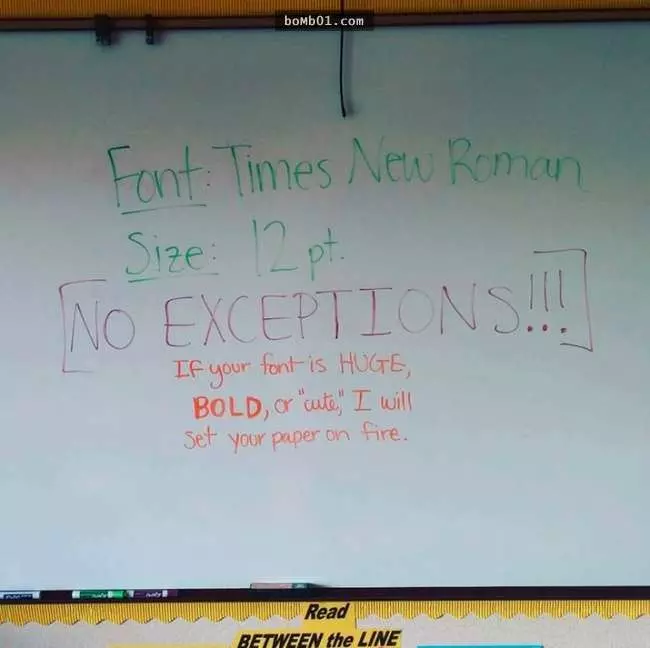 boMb01.com
Font: Times New Roman
Size: 12 pt.
[NO EXCEPTIONS!!!]
If your font is HUGE,
BOLD, or "cute," I will
set your paper on fire.
Read
BETWEEN the LINE